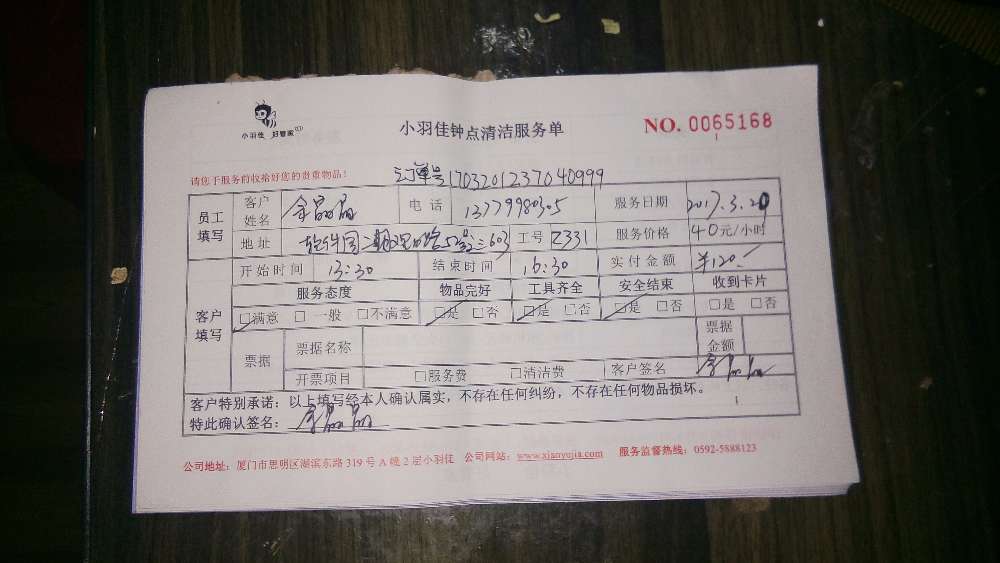 小羽佳 好管家
小羽佳钟点清洁服务单
NO. 0065168
请您于服务前收拾好您的贵重物品!
订单号1703201237040999
员工填写 客户姓名 余晶晶 电话 13779980305 服务日期 2017.3.20
地址 软件园二期观日路52号之二603 工号 Z331 服务价格 40元/小时
开始时间 13:30 结束时间 16:30 实付金额 ¥120.-
客户填写 服务态度 物品完好 工具齐全 安全结束 收到卡片
□满意 □一般 □不满意 □是 □否 □是 □否 □是 □否 □是 □否
票据 票据名称 票据金额
开票项目 □服务费 □清洁费 客户签名 余晶晶
客户特别承诺:以上填写经本人确认属实,不存在任何纠纷,不存在任何物品损坏。
特此确认签名: 余晶晶
公司地址:厦门市思明区湖滨东路319号A幢2层小羽佳 公司网站:www.xiaoyujia.com 服务监督热线:0592-5888123